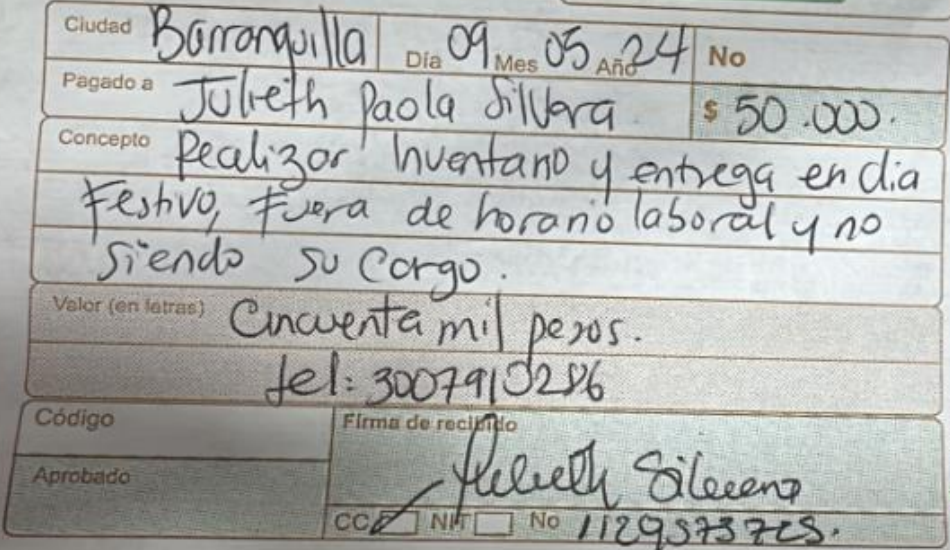 Ciudad Barranquilla Día 09 Mes 05 Año 24 No
Pagado a Julieth Paola Silvera $ 50.000.
Concepto Realizar Inventario y entrega en dia
Festivo, Fuera de horario laboral y no
Siendo su Cargo.
Valor (en letras) Cincuenta mil pesos.
tel: 3007910286
Código Firma de recibido
Julieth Silvera
Aprobado
CC NIT No